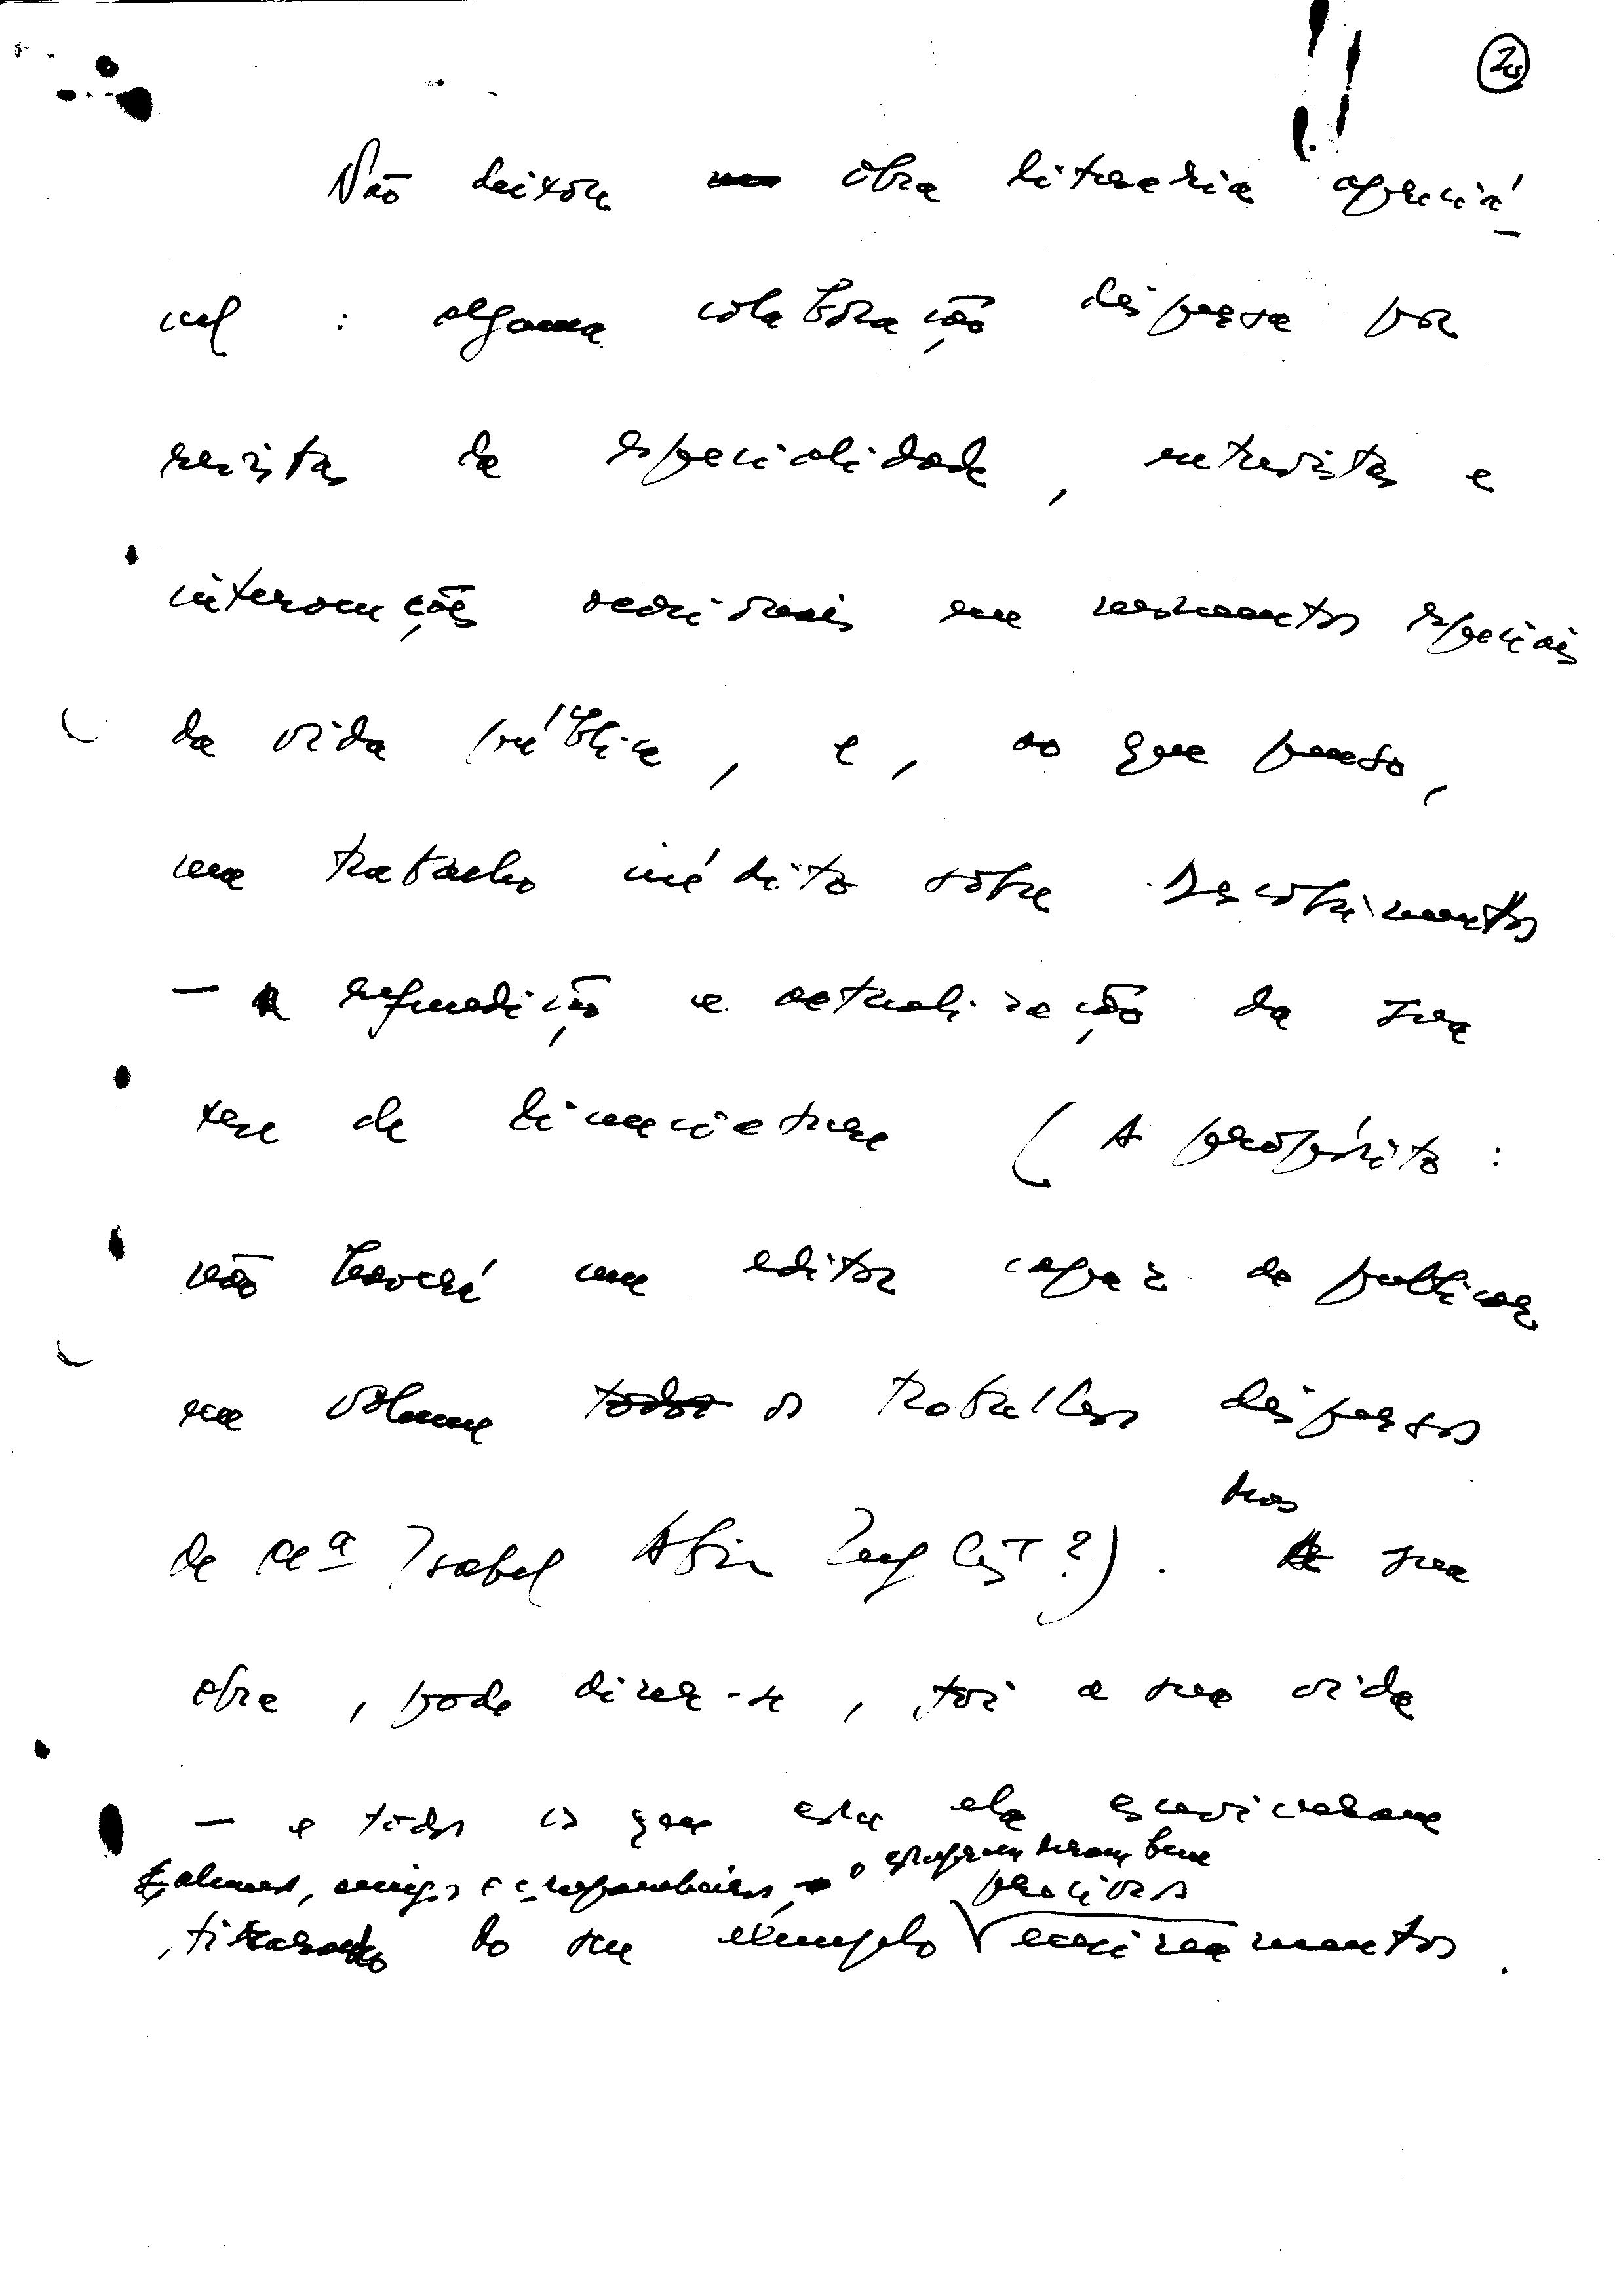 Não deixou obra literaria apreciá-
vel : alguma colaboração dispersa por
revistas da especialidade, entrevistas e
intervenções ocasionais em momentos especiais
da vida pública, e, ao que penso,
um trabalho inédito sobre Descobrimentos
— refundição e actualização da sua
tese de licenciatura (A propósito :
não haverá um editor capaz de publicar
em volume todos os trabalhos dispersos
de Mª Isabel ?). Mas
a sua
obra, pode dizer-se, foi a sua vida
— e todos os que com ela conviveram
alunos, amigos e companheiros,
preciosos
tiraram do seu exemplo ensinamentos.